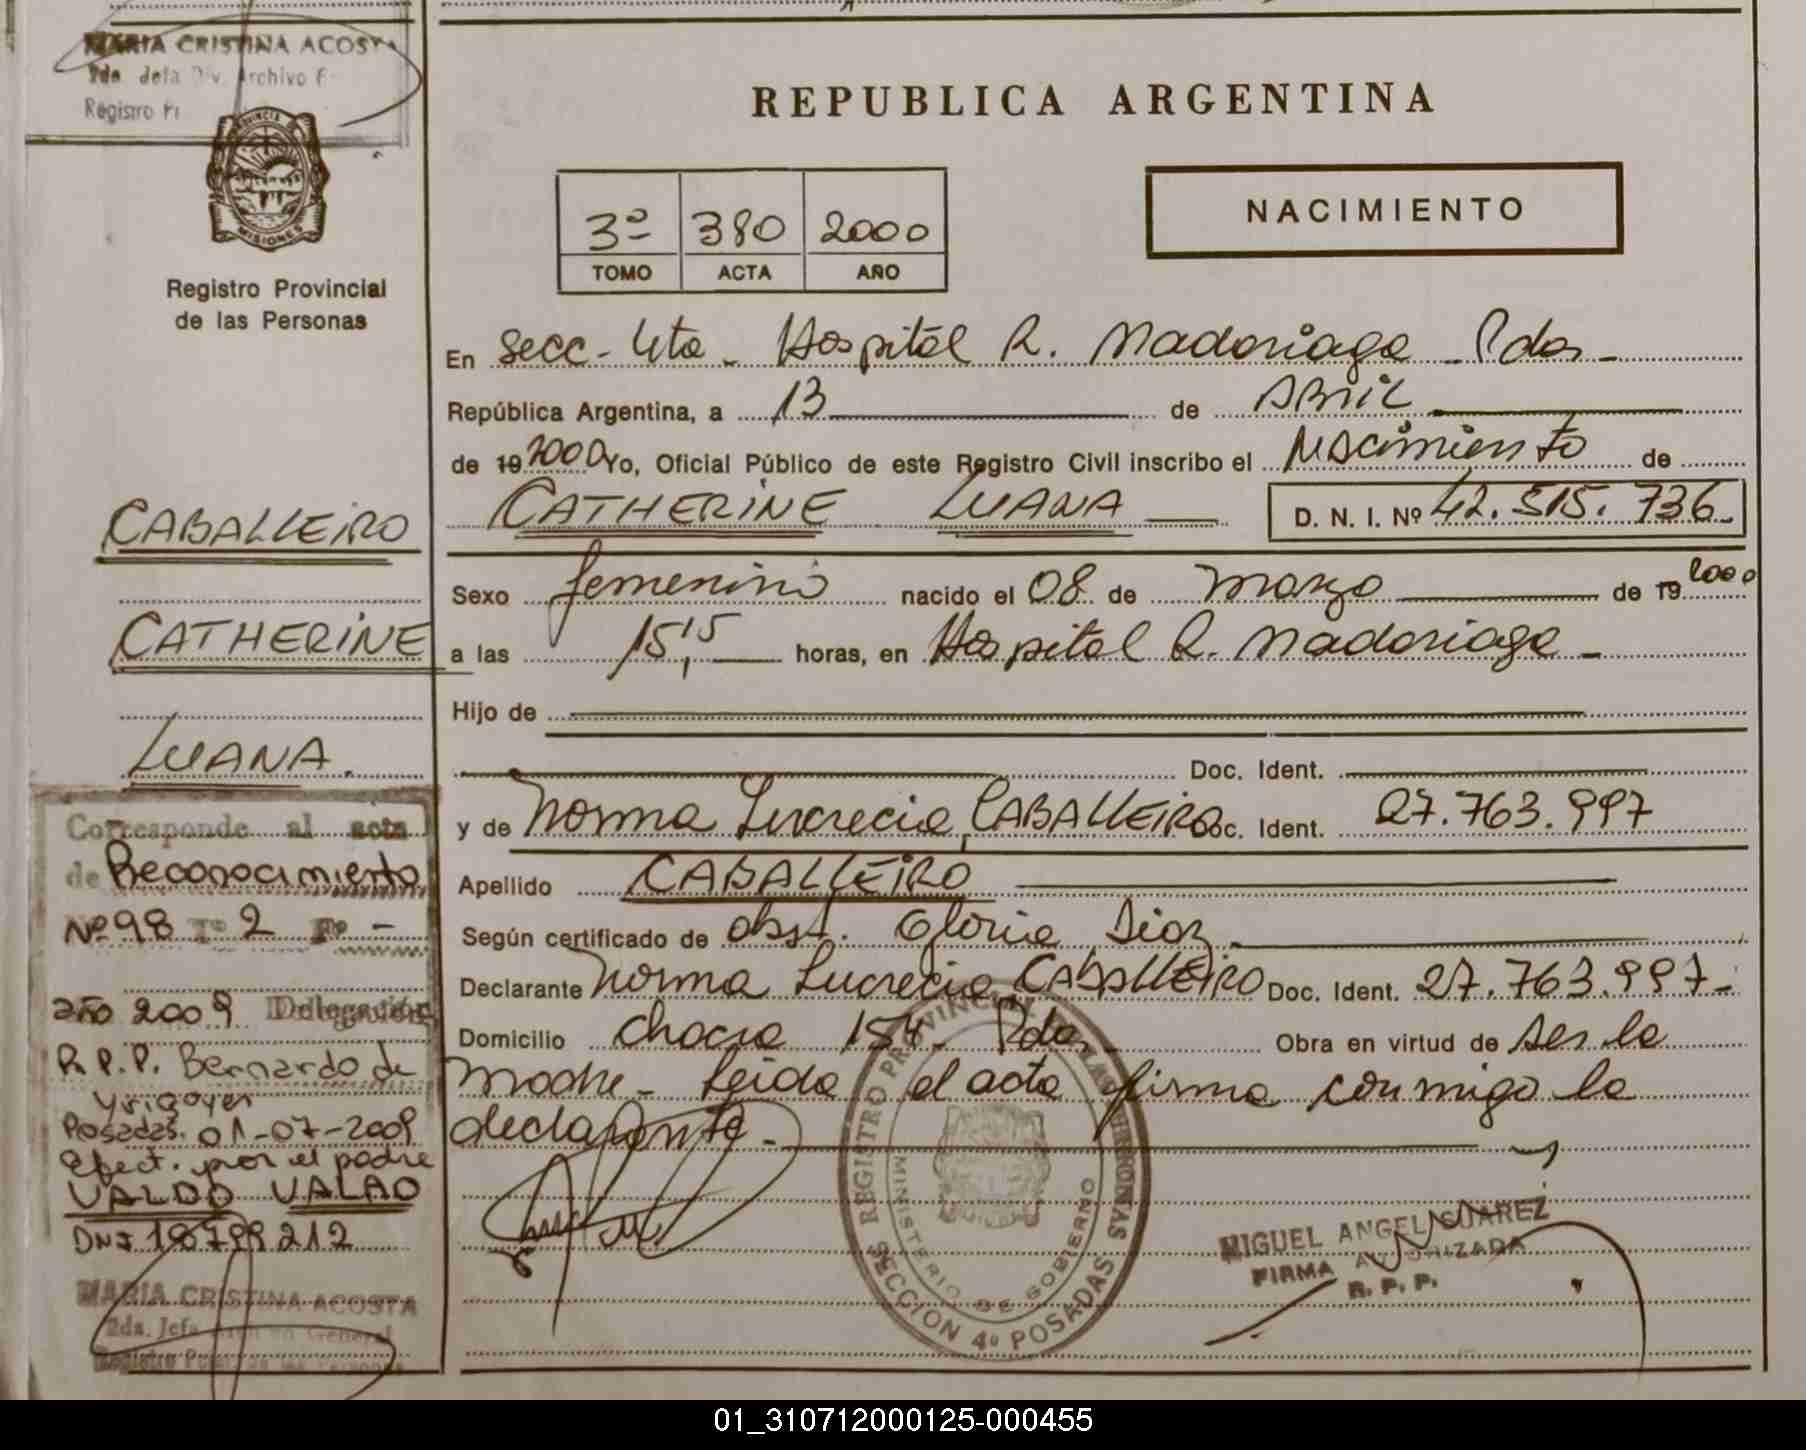 MARIA CRISTINA ACOSTA
2da. Jefa Div. Archivo
Registro
PROVINCIA DE
MISIONES
Registro Provincial
de las Personas
CABALLEIRO
CATHERINE
LUANA.
Corresponde al acta
de Reconocimiento
Nº 98 Tº 2 Fº -
año 2009 Delegación
R.P.P. Bernardo de
Yrigoyen
Posadas. 01-07-2009
Efect. por el padre
VALDO VALAO
DNI 18799212
MARIA CRISTINA ACOSTA
2da. Jefa General
REPUBLICA ARGENTINA
3º 380 2000
TOMO ACTA AÑO
NACIMIENTO
En Secc- 4ta - Hospital R. Madariaga - Pdas -
República Argentina, a 13 de Abril
de 19 2000 Yo, Oficial Público de este Registro Civil inscribo el Nacimiento de
CATHERINE LUANA D. N. I. Nº 42.515.736
Sexo femenino nacido el 08 de marzo de 19 2000
a las 15,15 horas, en Hospital R. Madariaga -
Hijo de
Doc. Ident.
y de Norma Lucrecia CABALLEIRO Doc. Ident. 27.763.997
Apellido CABALLEIRO
Según certificado de obst. Gloria Diaz
Declarante Norma Lucrecia CABALLEIRO Doc. Ident. 27.763.997-
Domicilio Chacra 154 - Pdas Obra en virtud de ser la
madre - Leida el acta firma conmigo la
declarante -
REGISTRO PROVINCIAL DE LAS PERSONAS
MINISTERIO DE GOBIERNO
SECCION 4º POSADAS
MIGUEL ANGEL SUAREZ
FIRMA AUTORIZADA
R. P. P.
01_310712000125-000455